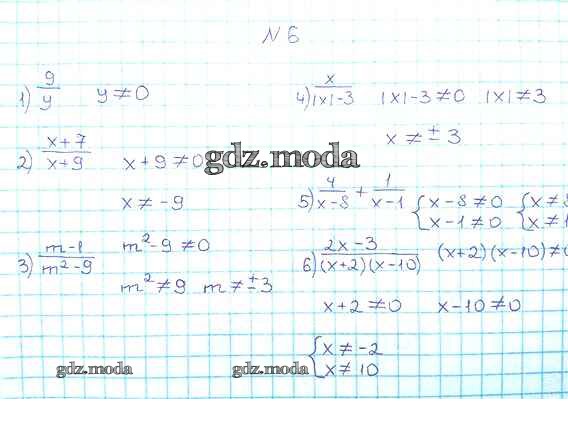 N 6
1) 9/y y ≠ 0
2) x+7/x+9 x + 9 ≠ 0
x ≠ -9
3) m-1/m²-9 m² - 9 ≠ 0
m² ≠ 9 m ≠ ±3
4) x/|x|-3 |x|-3 ≠ 0 |x| ≠ 3
x ≠ ±3
gdz.moda
5) 4/x-8 + 1/x-1 { x-8 ≠ 0 { x ≠ 8
x-1 ≠ 0 x ≠ 1
6) 2x-3/(x+2)(x-10) (x+2)(x-10) ≠ 0
x+2 ≠ 0 x-10 ≠ 0
{ x ≠ -2
x ≠ 10
gdz.moda gdz.moda